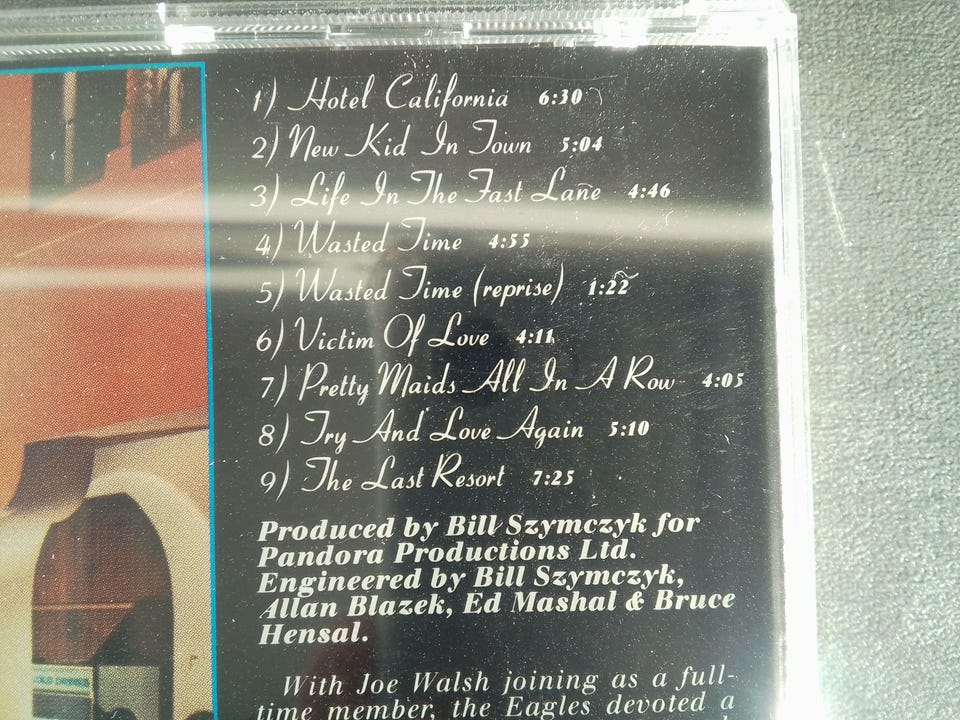 1) Hotel California 6:30
2) New Kid In Town 5:04
3) Life In The Fast Lane 4:46
4) Wasted Time 4:55
5) Wasted Time (reprise) 1:22
6) Victim Of Love 4:11
7) Pretty Maids All In A Row 4:05
8) Try And Love Again 5:10
9) The Last Resort 7:25
Produced by Bill Szymczyk for
Pandora Productions Ltd.
Engineered by Bill Szymczyk,
Allan Blazek, Ed Mashal & Bruce
Hensal.
With Joe Walsh joining as a full-
time member, the Eagles devoted a